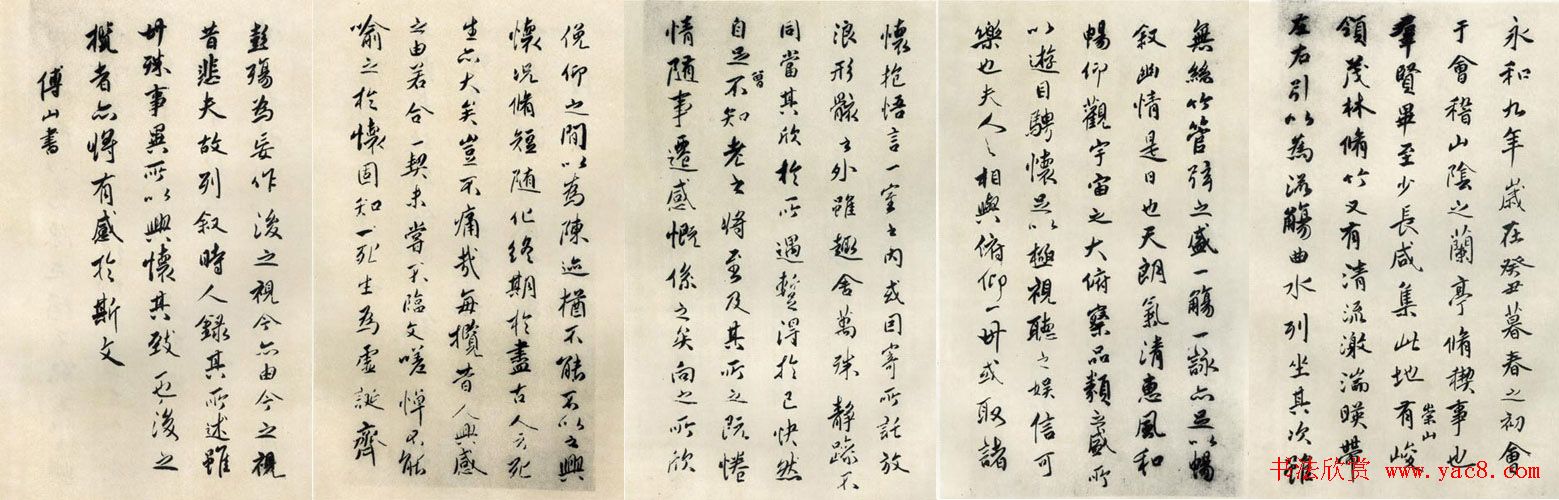 永和九年歲在癸丑暮春之初會
于會稽山陰之蘭亭脩稧事也
羣賢畢至少長咸集此地有崇山峻
領茂林脩竹又有清流激湍暎帶
左右引以為流觴曲水列坐其次雖
無絲竹管弦之盛一觴一詠亦足以暢
叙幽情是日也天朗氣清惠風和
暢仰觀宇宙之大俯察品類之盛所
以遊目騁懷足以極視聽之娛信可
樂也夫人之相與俯仰一世或取諸
懷抱悟言一室之內或因寄所託放
浪形骸之外雖趣舍萬殊靜躁不
同當其欣於所遇蹔得於己快然
自足不曾知老之將至及其所之既惓
情隨事遷感慨係之矣向之所欣
俛仰之間以為陳迹猶不能不以之興
懷況脩短隨化終期於盡古人云死
生亦大矣豈不痛哉每攬昔人興感
之由若合一契未嘗不臨文嗟悼不能
喻之於懷固知一死生為虛誕齊
彭殤為妄作後之視今亦由今之視
昔悲夫故列叙時人錄其所述雖
世殊事異所以興懷其致一也後之
攬者亦將有感於斯文
傅山書
书法欣赏 www.yac8.com